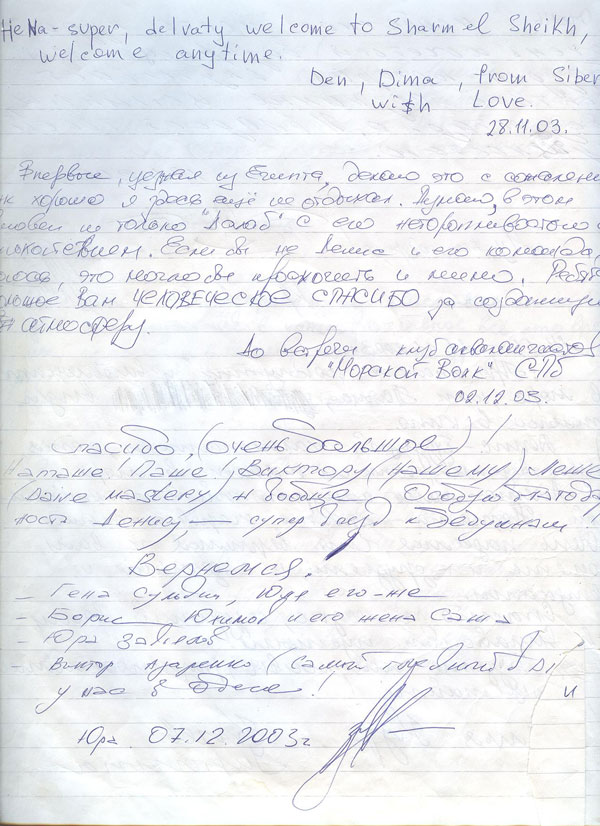 HeNa - super, delvaty welcome to Sharm el Sheikh,
welcome anytime.
Den, Dima, from Siber
with Love.
28.11.03.
Впервые, уезжая из Египта, делаю это с сожалени
к хорошо я здесь ещё не отдыхал. Думаю, в этом
новен не только "Дахаб" с его неторопливостью
спокойствием. Если бы не Денис и его команда,
это могло бы проскочить и мимо. Ребята
Вам ЧЕЛОВЕЧЕСКОЕ СПАСИБО за созданную
атмосферу.
До встречи клуб аквалангистов
"Морской Волк" СПб
02.12.03.
Спасибо, (очень большое)!
Наташе! Паше! Виктору (нашему) Леше
(Dave Mastery) и вообще Особую благода
ность Денису, — супер к дедушкам
Вернемся.
- Гена , его-же
- Борис и его жена Саша
- Юра
- Виктор (Самый
у нас в Одессе!
и
Юра. 07.12.2003г